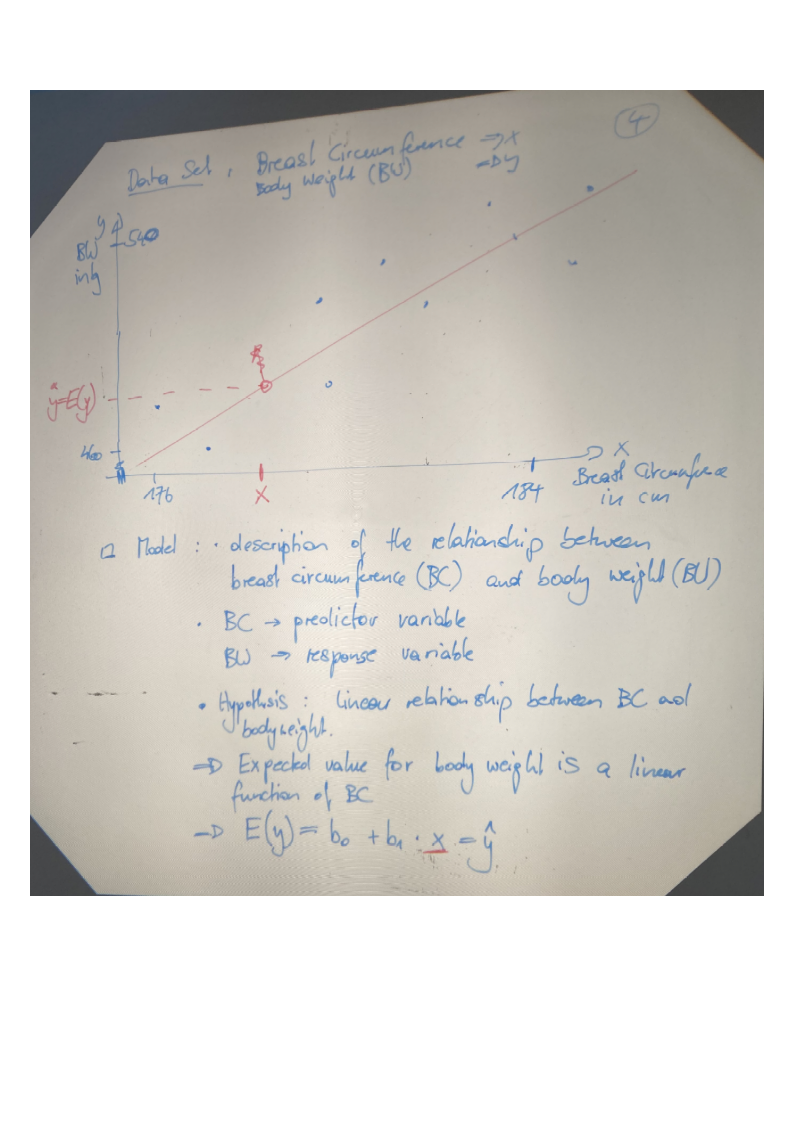 4
Data Set : Breast Circumference => X
Body Weight (BW) => y
y
BW
540
ŷ=E(y)
460
176
X
184
X
Breast Circumference
in cm
Model : · description of the relationship between
breast circumference (BC) and body weight (BW)
· BC → predictor variable
BW → response variable
• Hypothesis : linear relationship between BC and
bodyweight.
=> Expected value for body weight is a linear
function of BC
=> E(y) = b₀ + b₁ · x = ŷ